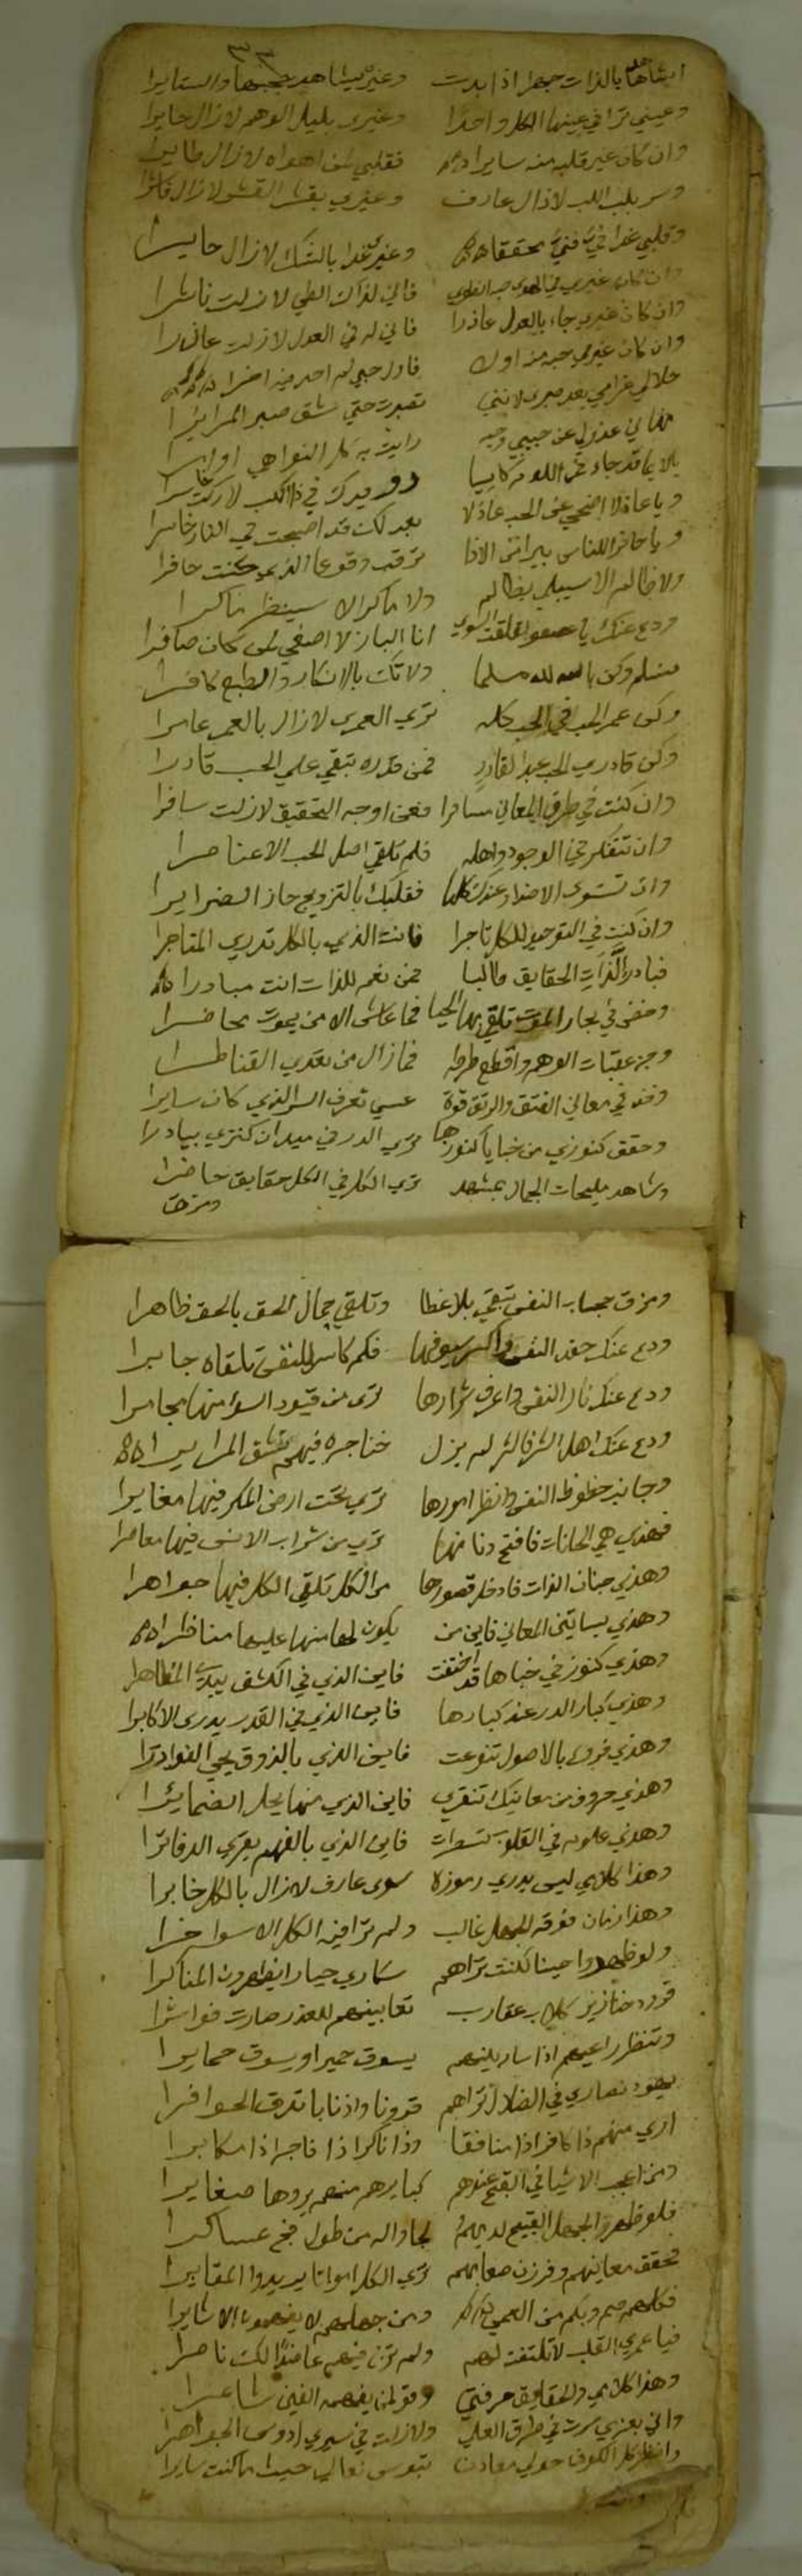 اشاهدها بالذات جهرا اذا بدت وغيري يشاهد حجبها والستايرا
وعيني ترا في عينها الكل واحدا وغيري بليل الوهم لازال حايرا
وان كان غير قلبه منه سايرا فقلبي لمن اهواه لازال طايرا
وسر بلب اللب لازال عارف وغيري بقشر القشر لازال
وقلبي غدا في فني محققا وغيري غدا بالشك لازال حايرا
وان كان غيري في الهوى فاني لذاك الطي لازلت ناشرا
وان كان غيري جاء بالعدل عاذرا فاني له في العدل لازلت عاذرا
وان كان غيري حبه من اول فاول حبي له احد فيه اخرا
حلالي غرامي بعد صبري لانني تصبرت حتى شق صبر المرايرا
نهاني عذولي عن حبيبي وجيه رايت به كل النواهي اوامرا
يالايما قد جاء في اللوم راكبا رويدك في ذا الركب لازلت خاسرا
ويا عاذلا اضحى عن الحب عاذلا بعدلك قد اصبحت في النار خاسرا
ويا حافرا للناس بير الاذا ترقب وقوعا الذي كنت حافرا
ولا ظالم الا سيبلى بظالم ولا ماكر الا سينظر ماكرا
ودع عنك يا عصفور السوى انا الباز لا اصغي لمن كان صافرا
فسلم وكن بالله لله مسلما ولا تك بالانكار والطبع كافرا
وكن عمر الحب في الحب كله ترى العمر لازال بالعمر عامرا
وكن قادري الحب عبد القادر فمن قدره تبقى على الحب قادرا
وان كنت في طرق المعاني مسافرا فعن اوجه التحقيق لازلت سافرا
وان تتفكر في الوجود واهله فلم تلقى اصل الحب الا عناصرا
وان تستوى الاضداد عندك كلها فقلبك بالتزويج حاز الضرايرا
وان كنت في التوحيد للكل تاجرا فانت الذي بالكل تدري المتاجرا
فبادر لذات الحقايق طالبا فمن نعم للذات انت مبادرا
وخض في بحار الموت تلقى بها الحيا فما عاش الا من يموت مخاضرا
وجز عقبات الوهم واقطع طرقه فما زال من يعدي القناطرا
وخذ في معاني الفتق والرتق قوة عسى تعرف السر الذي كان سايرا
وحقق كنوزي من خبايا كنوزها ترى الدر في ميدان كنزي بيادرا
وشاهد مليحات الجمال بمشهد ترى الكل في الكل حقايق حاضرا
ومزق
ومزق حجاب النفس تبقى بلا غطا وتلقى جمال الحق بالحق ظاهرا
ودع عنك حقد النفس واكسر سيوفها فكم كاسر للنفس تلقاه جابرا
ودع عنك نار النفس واعرف شرارها ترى من قيود السوا منها مجامرا
ودع عنك اهل الشر فالشر لم يزل خناجره فيهم تشق المرايرا
وجانب حظوظ النفس وانظر امورها ترى تحت ارض المكر فيها مغايرا
فهذي هي الحانات فافتح دنانها ترى من شراب الانس فيها معاصرا
وهذي جنان الذات فادخل قصورها من الكل تلقى الكل فيها جواهرا
وهذي بساتين المعاني فاين من يكون لها منها عليها مناظرا
وهذي كنوز في خباها قد اختفت فاين الذي في الكشف يبدي المظاهرا
وهذي كبار الدر عند كبارها فاين الذي في القدر يدري الاكابرا
وهذي فروع بالاصول تنوعت فاين الذي بالذوق يحي النوادرا
وهذي حروف من معانيك تنقرى فاين الذي منها يحل الضمايرا
وهذي علوم في القلوب تسطرت فاين الذي بالفهم يقري الدفاترا
وهذا كلامي ليس يدري رموزه سوى عارف لازال بالكل خابرا
وهذا زمان فوقه الجهل غالب ولم ترا فيه الكل الا سواخرا
ولو ظهروا حينا لكنت تراهم سكارى حيارا يظهرون المناكرا
قرود خنازير كلاب عقارب ثعابينهم للغدر صارت فواشرا
وتنظر راعيهم اذا سار بينهم يسوق حميرا ويسوق حمايرا
يهود نصارى في الضلال تراهم قرونا واذنابا تدق الحوافرا
ارى منهم ذا كافرا ذا منافقا وذا ناكرا ذا فاجرا ذا مكابرا
ومن اعجب الاشيا في القبح عندهم كبايرهم منهم يروها صغايرا
فلو ظهر الجهل القبيح لديهم لجا واله من طول فج عساكرا
تحقق معانيهم وفرزن صفاتهم ترى الكل امواتا يريدوا المقابرا
فكلهم صم وبكم من العمى ومن جهلهم لا يفهمون الاشايرا
فيا عمري القلب لا تلتفت لهم ولم ترن فيهم عاضدا لك ناصرا
وهذا كلامي والحقايق حرفتي وقولي يفهمه الفين شاعرا
واني بعزي سرت في طرق العلى ولازلت في سيري ادوس الجواهرا
وانظر كل الكون حولي معادن تبوس نعالي حيث ما كنت سايرا